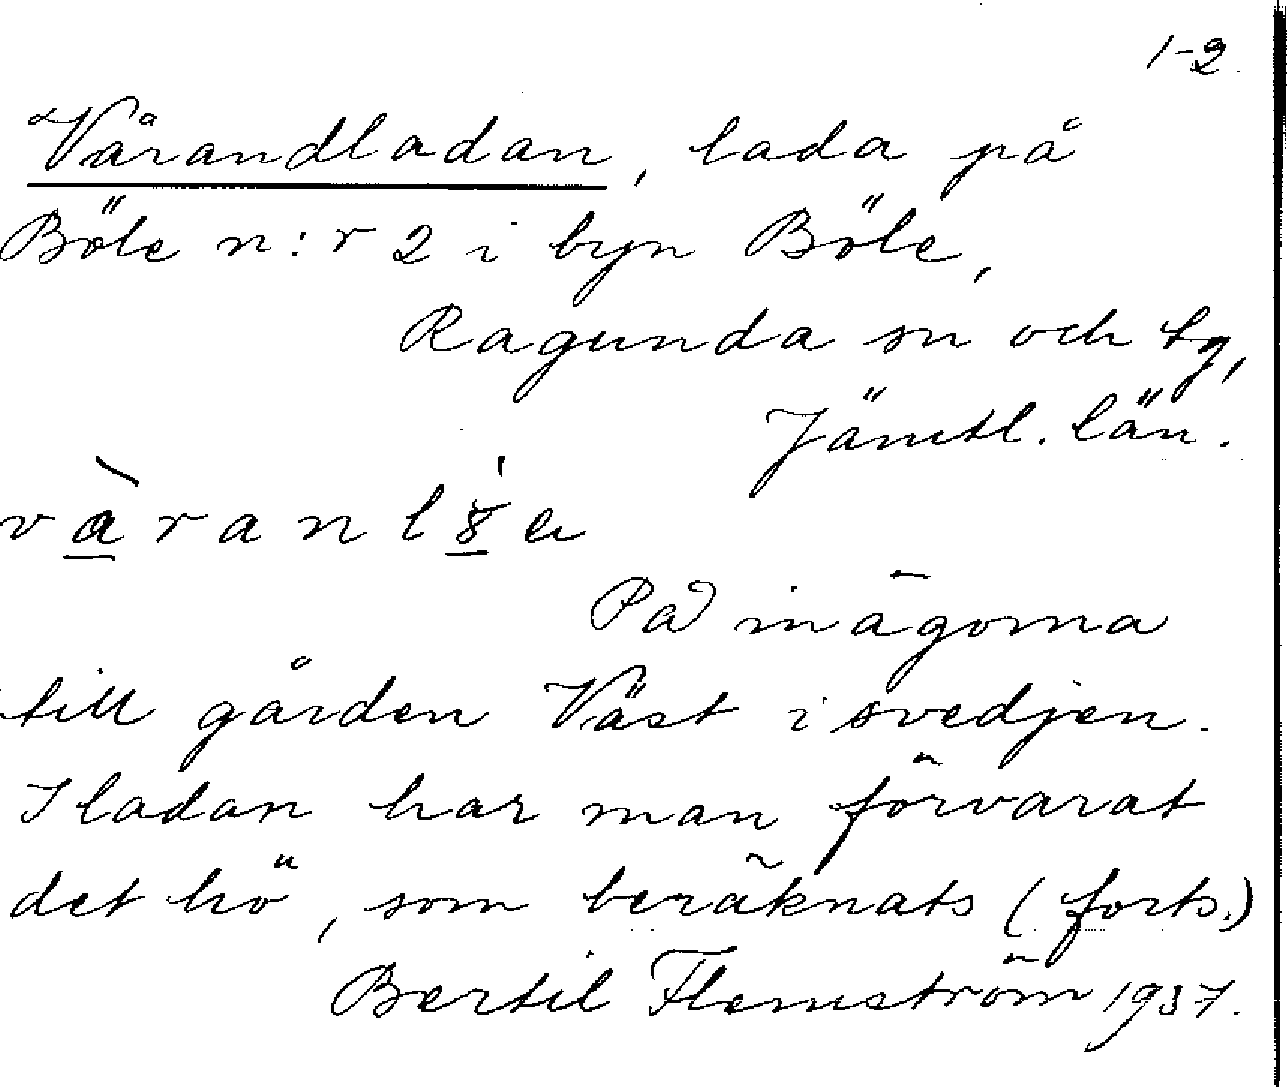 1-2.
Vårandladan, lada på
Böle n:r 2 i byn Böle,
Ragunda sn och tg,
Jämtl. län.
På inägorna
till gården Väst i svedjen.
I ladan har man förvarat
det hö, som beräknats (forts.)
Bertil Flemström 1937.